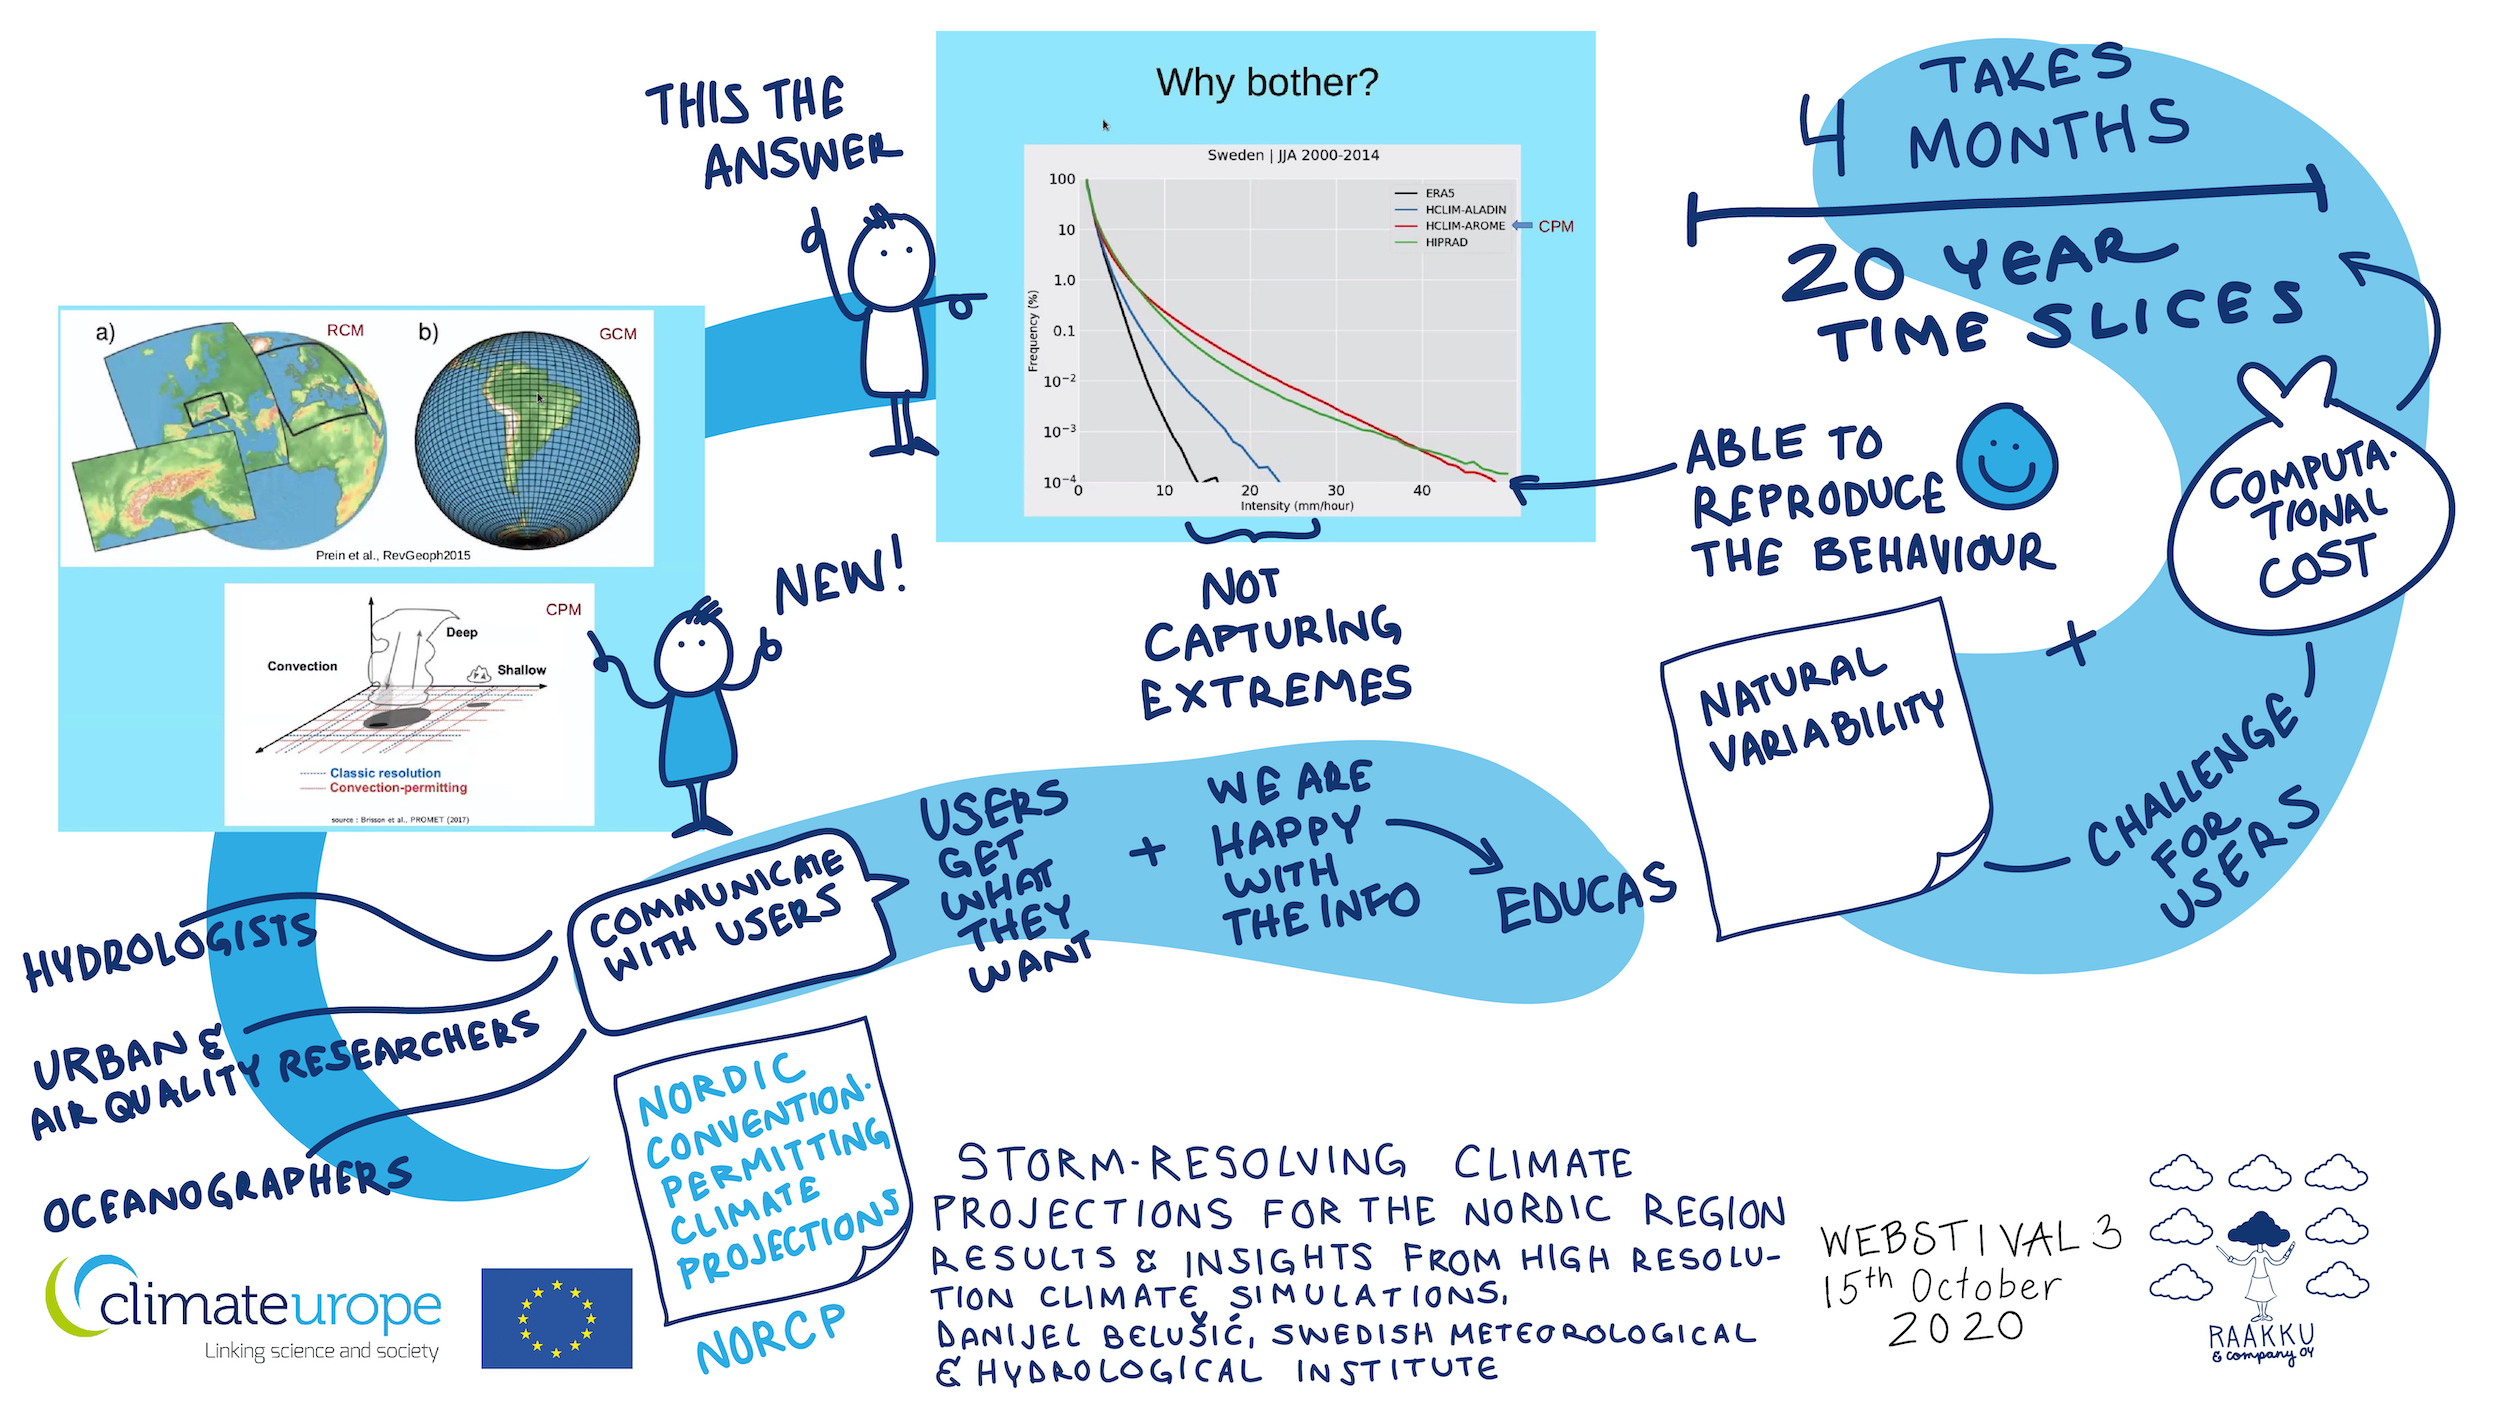 THIS THE
ANSWER
Why bother?
Sweden | JJA 2000-2014
100
10
1.0
0.1
10⁻²
10⁻³
10⁻⁴
0
10
20
30
40
Frequency (%)
Intensity (mm/hour)
ERA5
HCLIM-ALADIN
HCLIM-AROME
HIPRAD
CPM
TAKES
4 MONTHS
20 YEAR
TIME SLICES
a)
RCM
b)
GCM
Prein et al., RevGeoph2015
CPM
Deep
Convection
Shallow
Classic resolution
Convection-permitting
source : Brisson et al., PROMET (2017)
NEW!
NOT
CAPTURING
EXTREMES
ABLE TO
REPRODUCE
THE BEHAVIOUR
COMPUTA-
TIONAL
COST
+
NATURAL
VARIABILITY
CHALLENGE
FOR
USERS
COMMUNICATE
WITH USERS
USERS
GET
WHAT
THEY
WANT
+
WE ARE
HAPPY
WITH
THE INFO
EDUCAS
HYDROLOGISTS
URBAN &
AIR QUALITY RESEARCHERS
OCEANOGRAPHERS
NORDIC
CONVENTION-
PERMITTING
CLIMATE
PROJECTIONS
NORCP
STORM-RESOLVING CLIMATE
PROJECTIONS FOR THE NORDIC REGION
RESULTS & INSIGHTS FROM HIGH RESOLU-
TION CLIMATE SIMULATIONS,
DANIJEL BELUŠIĆ, SWEDISH METEOROLOGICAL
& HYDROLOGICAL INSTITUTE
climateurope
Linking science and society
WEBSTIVAL 3
15th October
2020
RAAKKU
& company OY